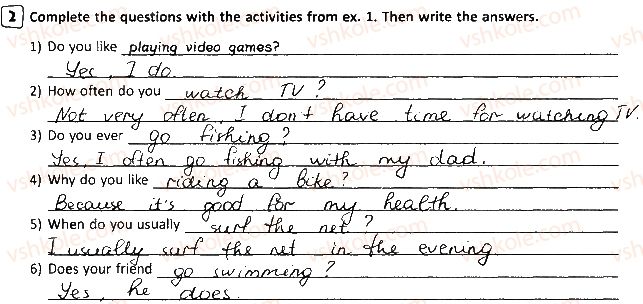 2 Complete the questions with the activities from ex. 1. Then write the answers.
1) Do you like playing video games?
Yes, I do.
2) How often do you watch TV?
Not very often, I don't have time for watching TV.
3) Do you ever go fishing?
Yes, I often go fishing with my dad.
4) Why do you like riding a bike?
Because it's good for my health.
5) When do you usually surf the net?
I usually surf the net in the evening.
6) Does your friend go swimming?
Yes, he does.